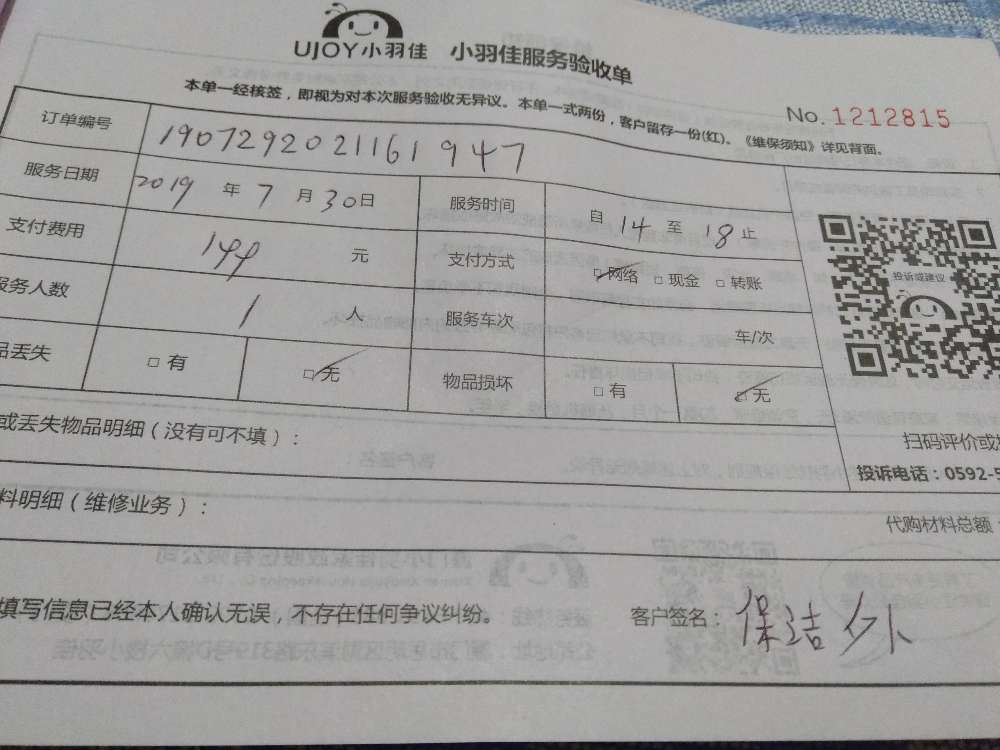 UJOY小羽佳 小羽佳服务验收单
No.1212815
本单一经核签，即视为对本次服务验收无异议。本单一式两份，客户留存一份(红)。《维保须知》详见背面。
订单编号 1907292021161947
服务日期 2019年7月30日 服务时间 自14至18止
支付费用 144元 支付方式 ☑网络 □现金 □转账
服务人数 1人 服务车次 车/次
品丢失 □有 ☑无 物品损坏 □有 ☑无
投诉或建议
或丢失物品明细（没有可不填）：
扫码评价或
投诉电话：0592-5
料明细（维修业务）：
代购材料总额
填写信息已经本人确认无误，不存在任何争议纠纷。
客户签名：保洁